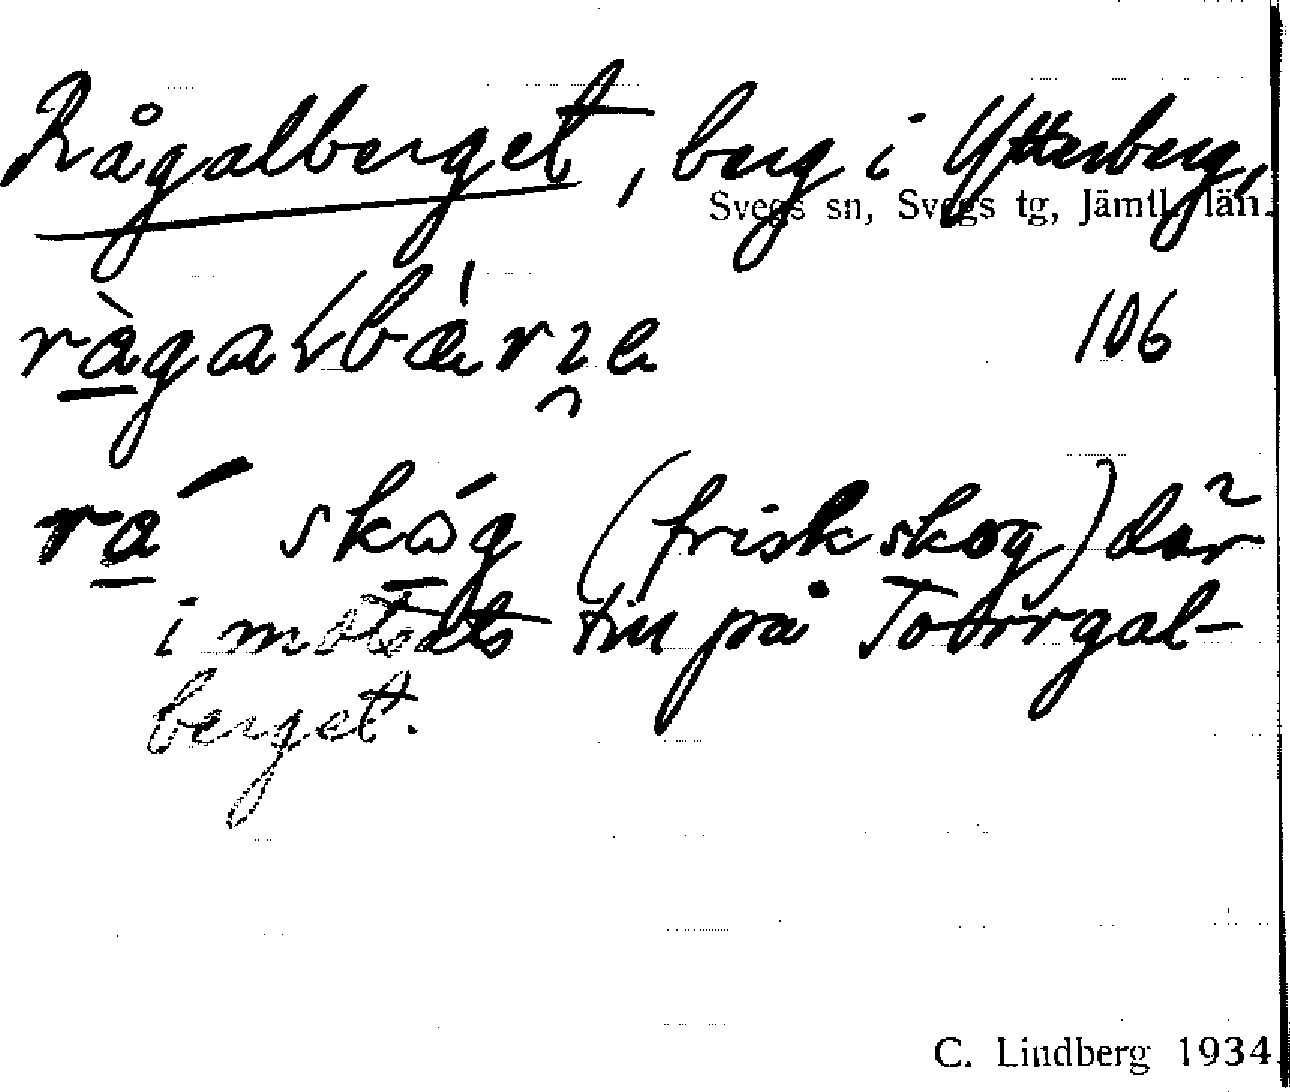 Rågalberget, berg i Ytterberg,
Svegs sn, Svegs tg, Jämtl. län.
106
rå skóg (friskskog) där
i motsats till på Torrgal-
berget.
C. Lindberg 1934.